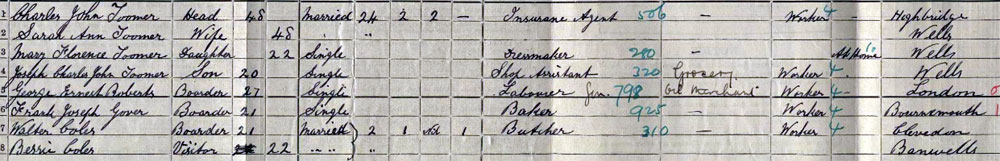 1 Charles John Toomer Head 48 Married 24 2 2 — Insurance Agent 506 — Worker 4 Highbridge
2 Sarah Ann Toomer Wife 48 " " Wells
3 Mary Florence Toomer Daughter 22 Single Dressmaker 280 — At Home Wells
4 Joseph Charles John Toomer Son 20 Single Shop Assistant 320 Grocery Worker 4 Wells
5 George Ernest Roberts Boarder 27 Single Labourer Gen. 798 Oil Merchant Worker 4 London
6 Frank Joseph Gover Boarder 21 Single Baker 925 — Worker 4 Bournemouth
7 Walter Coles Boarder 21 Married 2 1 Nil 1 Butcher 310 — Worker 4 Clevedon
8 Bessie Coles Visitor 22 " " Banwell